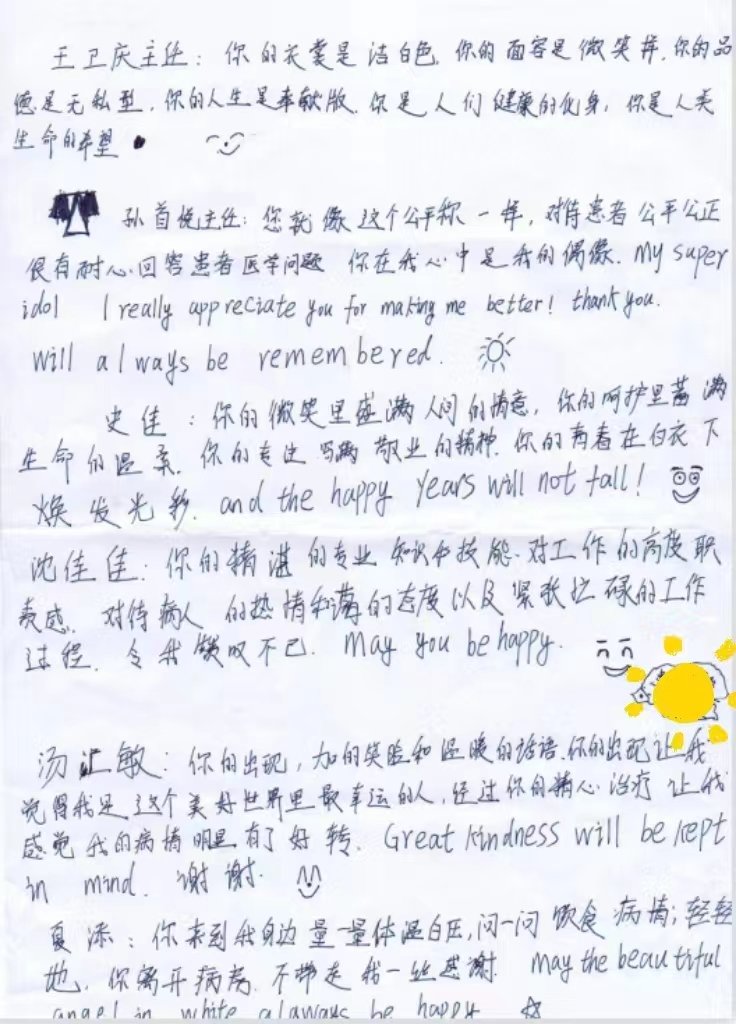 王卫庆主任：你的衣裳是洁白色，你的面容是微笑样，你的品
德是无私型，你的人生是奉献版，你是人们健康的化身，你是人类
生命的希望
孙首悦主任：您就像这个公平称一样，对待患者公平公正
很有耐心回答患者医学问题 你在我心中是我的偶像．My super
idol I really appreciate you for making me better! thank you.
will always be remembered.
史佳：你的微笑里盛满人间的情意，你的呵护里蓄满
生命的温柔，你的专注写满敬业的精神，你的青春在白衣下
焕发光彩．and the happy years will not fall!
沈佳佳：你的精湛的专业知识和技能、对工作的高度职
责感，对待病人的热情和蔼的态度以及紧张忙碌的工作
过程，令我赞叹不已．May you be happy.
汤正敏：你的出现，加的笑脸和温暖的话语，你的出现让我
觉得我是这个美好世界里最幸运的人，经过你的精心治疗让我
感觉我的病情明显有了好转．Great kindness will be kept
in mind. 谢谢．
夏添：你来到我身边量一量体温白压，问一问饮食病情；轻轻
地，你离开病房，不带走我一丝感谢．may the beautiful
angel in white alaways be happy